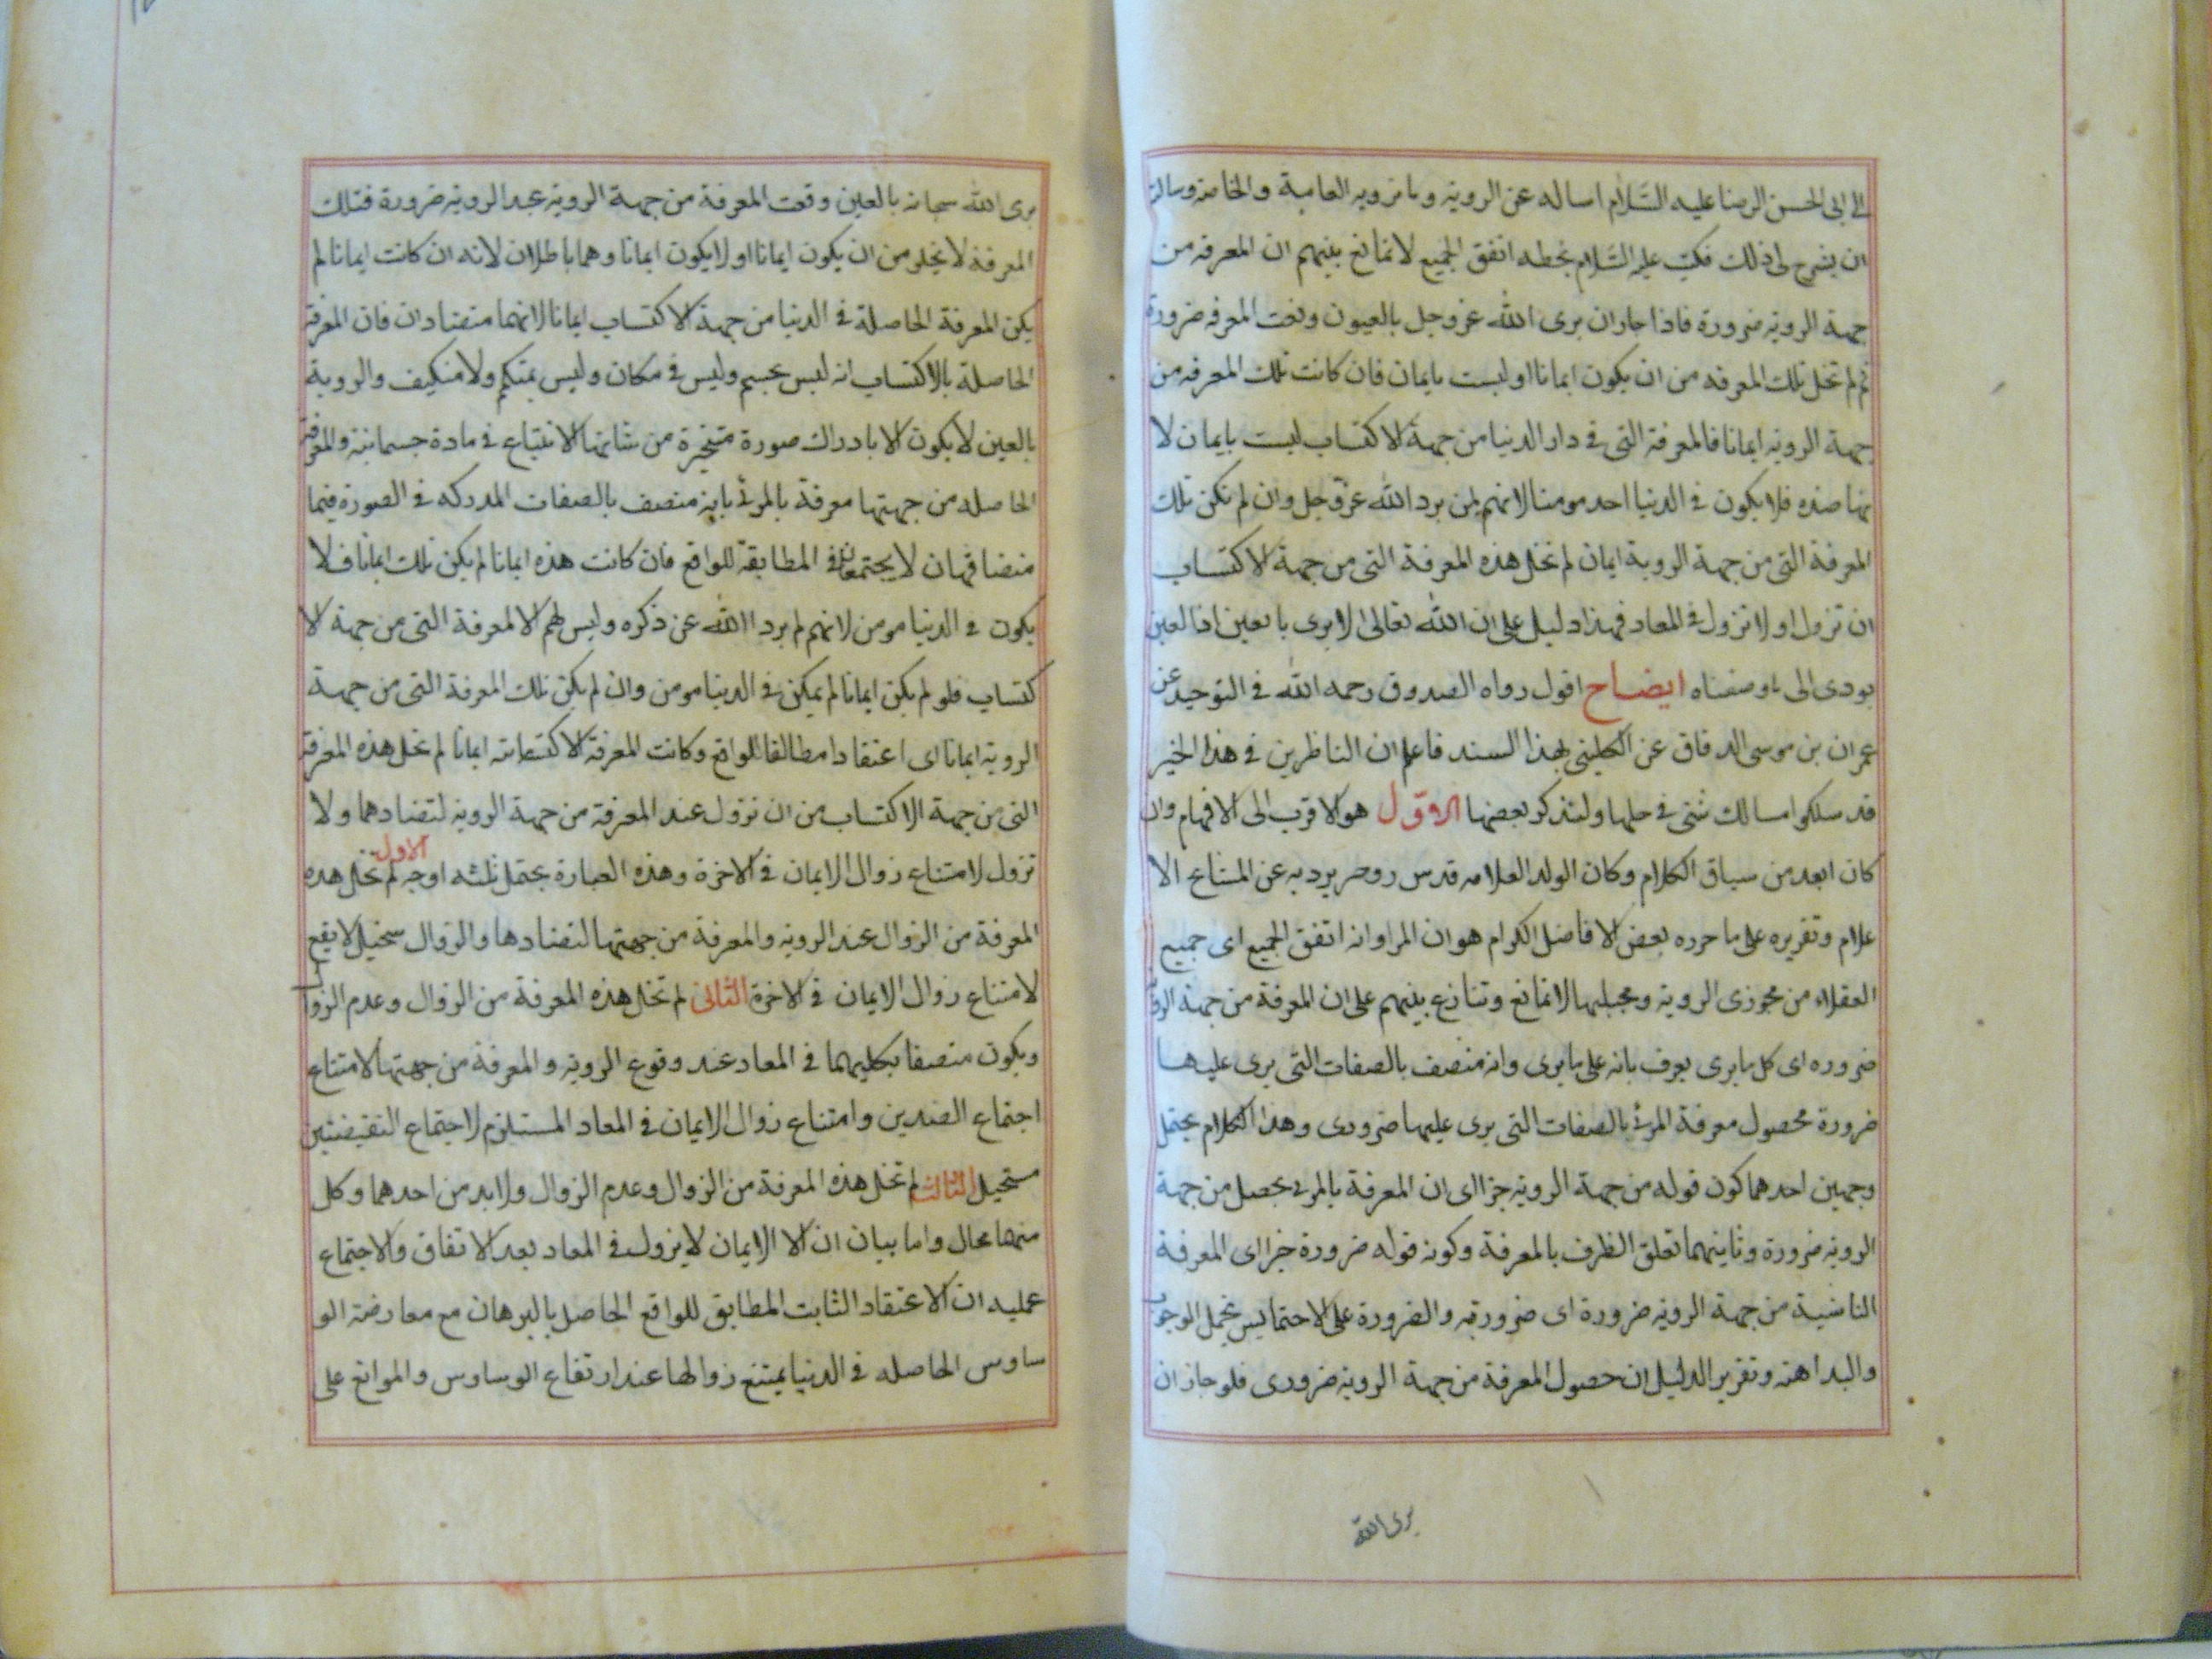 الى ابى الحسن الرضا عليه السَّلام اساله عن الروية وما ترويه العامية والخاصة وسالته
ان يشرح لى ذلك فكتب عليه السَّلام بخطه اتفق الجميع لا تمانع بينهم ان المعرفة من
جهة الروية ضرورة فاذا جاز ان يرى الله عز وجل بالعيون وقعت المعرفه ضرورة
ثم لم تخل تلك المعرفه من ان يكون ايمانا او ليست بايمان فان كانت تلك المعرفه من
جهة الرويه ايمانا فالمعرفة التى فى دار الدنيا من جهة الاكتساب ليست بايمان لا
نها ضده فلا يكون فى الدنيا احد مومنا لانهم لمن يرد الله عز وجل وان لم تكن تلك
المعرفة التى من جهة الروية ايمان لم تخل هذه المعرفة التى من جهة الاكتساب
ان تزول او لا تزول فى المعاد فهذا دليل على ان الله تعالى لا يرى بالعين اذ العين
يودى الى ما وصفناه ايضاح اقول رواه الصدوق رحمه الله فى التوحيد عن
عمران بن موسى الدقاق عن الكلينى بهذا السند فاعلم ان الناظرين فى هذا الخبر
قد سلكوا مسالك شتى فى حلها ولنذكر بعضها الاول هو الاقرب الى الافهام وان
كان ابعد من سياق الكلام وكان الولد العلامه قدس روحه يرديه عن المشايخ الا
علام وتقريره على ما حرره بعض الافاضل الكرام هو ان المراد انه اتفق الجميع اى جميع
العقلاء من مجوزى الروية ومحيليها لا تمانع وتنازع بينهم على ان المعرفة من جهة الروية
ضروره اى كل ما يرى يعرف بانه على ما يرى وانه متصف بالصفات التى يرى عليها
ضرورة فحصول معرفة المرئ بالصفات التى يرى عليها ضرورى وهذا الكلام يحتمل
وجهين احدهما كون قوله من جهة الروية جزا اى ان المعرفة بالمرئ يحصل من جهة
الروية ضرورة وثانيهما تعلق الظرف بالمعرفة وكونه قوله ضرورة خبرا اى المعرفة
الناشية من جهة الروية ضرورة اى ضرورية والضرورة على الاحتمالين يحتمل الوجوب
والبداهته وتقرير الدليل ان حصول المعرفة من جهة الروية ضرورى فلو جاز ان
يرى الله
يرى الله سبحانه بالعين وقعت المعرفة من جهة الروية عند الروية ضرورة فتلك
المعرفة لا يخلو من ان يكون ايمانا او لا يكون ايمانا وهما باطلان لانه ان كانت ايمانا لم
يكن المعرفة الحاصلة فى الدنيا من جهة الاكتساب ايمانا لانهما متضادان فان المعرفة
الحاصلة بالاكتساب انه ليس بجسم وليس فى مكان وليس بمتكمم ولا متكيف والروية
بالعين لا يكون الا بادراك صورة متحيزة من شانها الانطباع فى مادة جسمانية والمعرفة
الحاصله من جهتها معرفة بالمرئ بانه متصف بالصفات المدركه فى الصورة فهما
متضافتان لا يجتمعان فى المطابقة للواقع فان كانت هذه ايمانا لم يكن تلك ايمانا فلا
يكون فى الدنيا مومن لانهم لم يرد االله عن ذكره وليس لهم الا المعرفة التى من جهة الا
كتساب فلو لم يكن ايمانا لم يمكن فى الدنيا مومن وان لم يكن تلك المعرفة التى من جهة
الروية ايمانا اى اعتقادا مطالقا للواقع وكانت المعرفة الاكتسابية ايمانا لم تخل هذه المعرفة
التى من جهة الاكتساب من ان تزول عند المعرفة من جهة الروية لتضادهما ولا
تزول لامتناع زوال الايمان فى الاخرة وهذه العبارة يحتمل ثلثه اوجه الاول لم تخل هذه
المعرفة من الزوال عند الروية والمعرفة من جهتها لتضادها والزوال مستحيل لا يقع
لامتناع زوال الايمان فى الاخرة الثانى لم تخل هذه المعرفة من الزوال وعدم الزوال
ويكون متصفا بكليهما فى المعاد عند وقوع الروية والمعرفة من جهتها لامتناع
اجتماع الضدين وامتناع زوال الايمان فى المعاد المستلزم لاجتماع النقيضين
مستحيل الثالث لم تخل هذه المعرفة من الزوال وعدم الزوال ولا بد من احدهما وكل
منهما محال واما بيان ان الا الايمان لا يزول فى المعاد بعد الاتفاق والاجتماع
عمليه ان الاعتقاد الثابت المطابق للواقع الحاصل بالبرهان مع معارضة الو
ساوس الحاصله فى الدنيا يمتنع زوالها عند ارتفاع الوساوس والموانع على